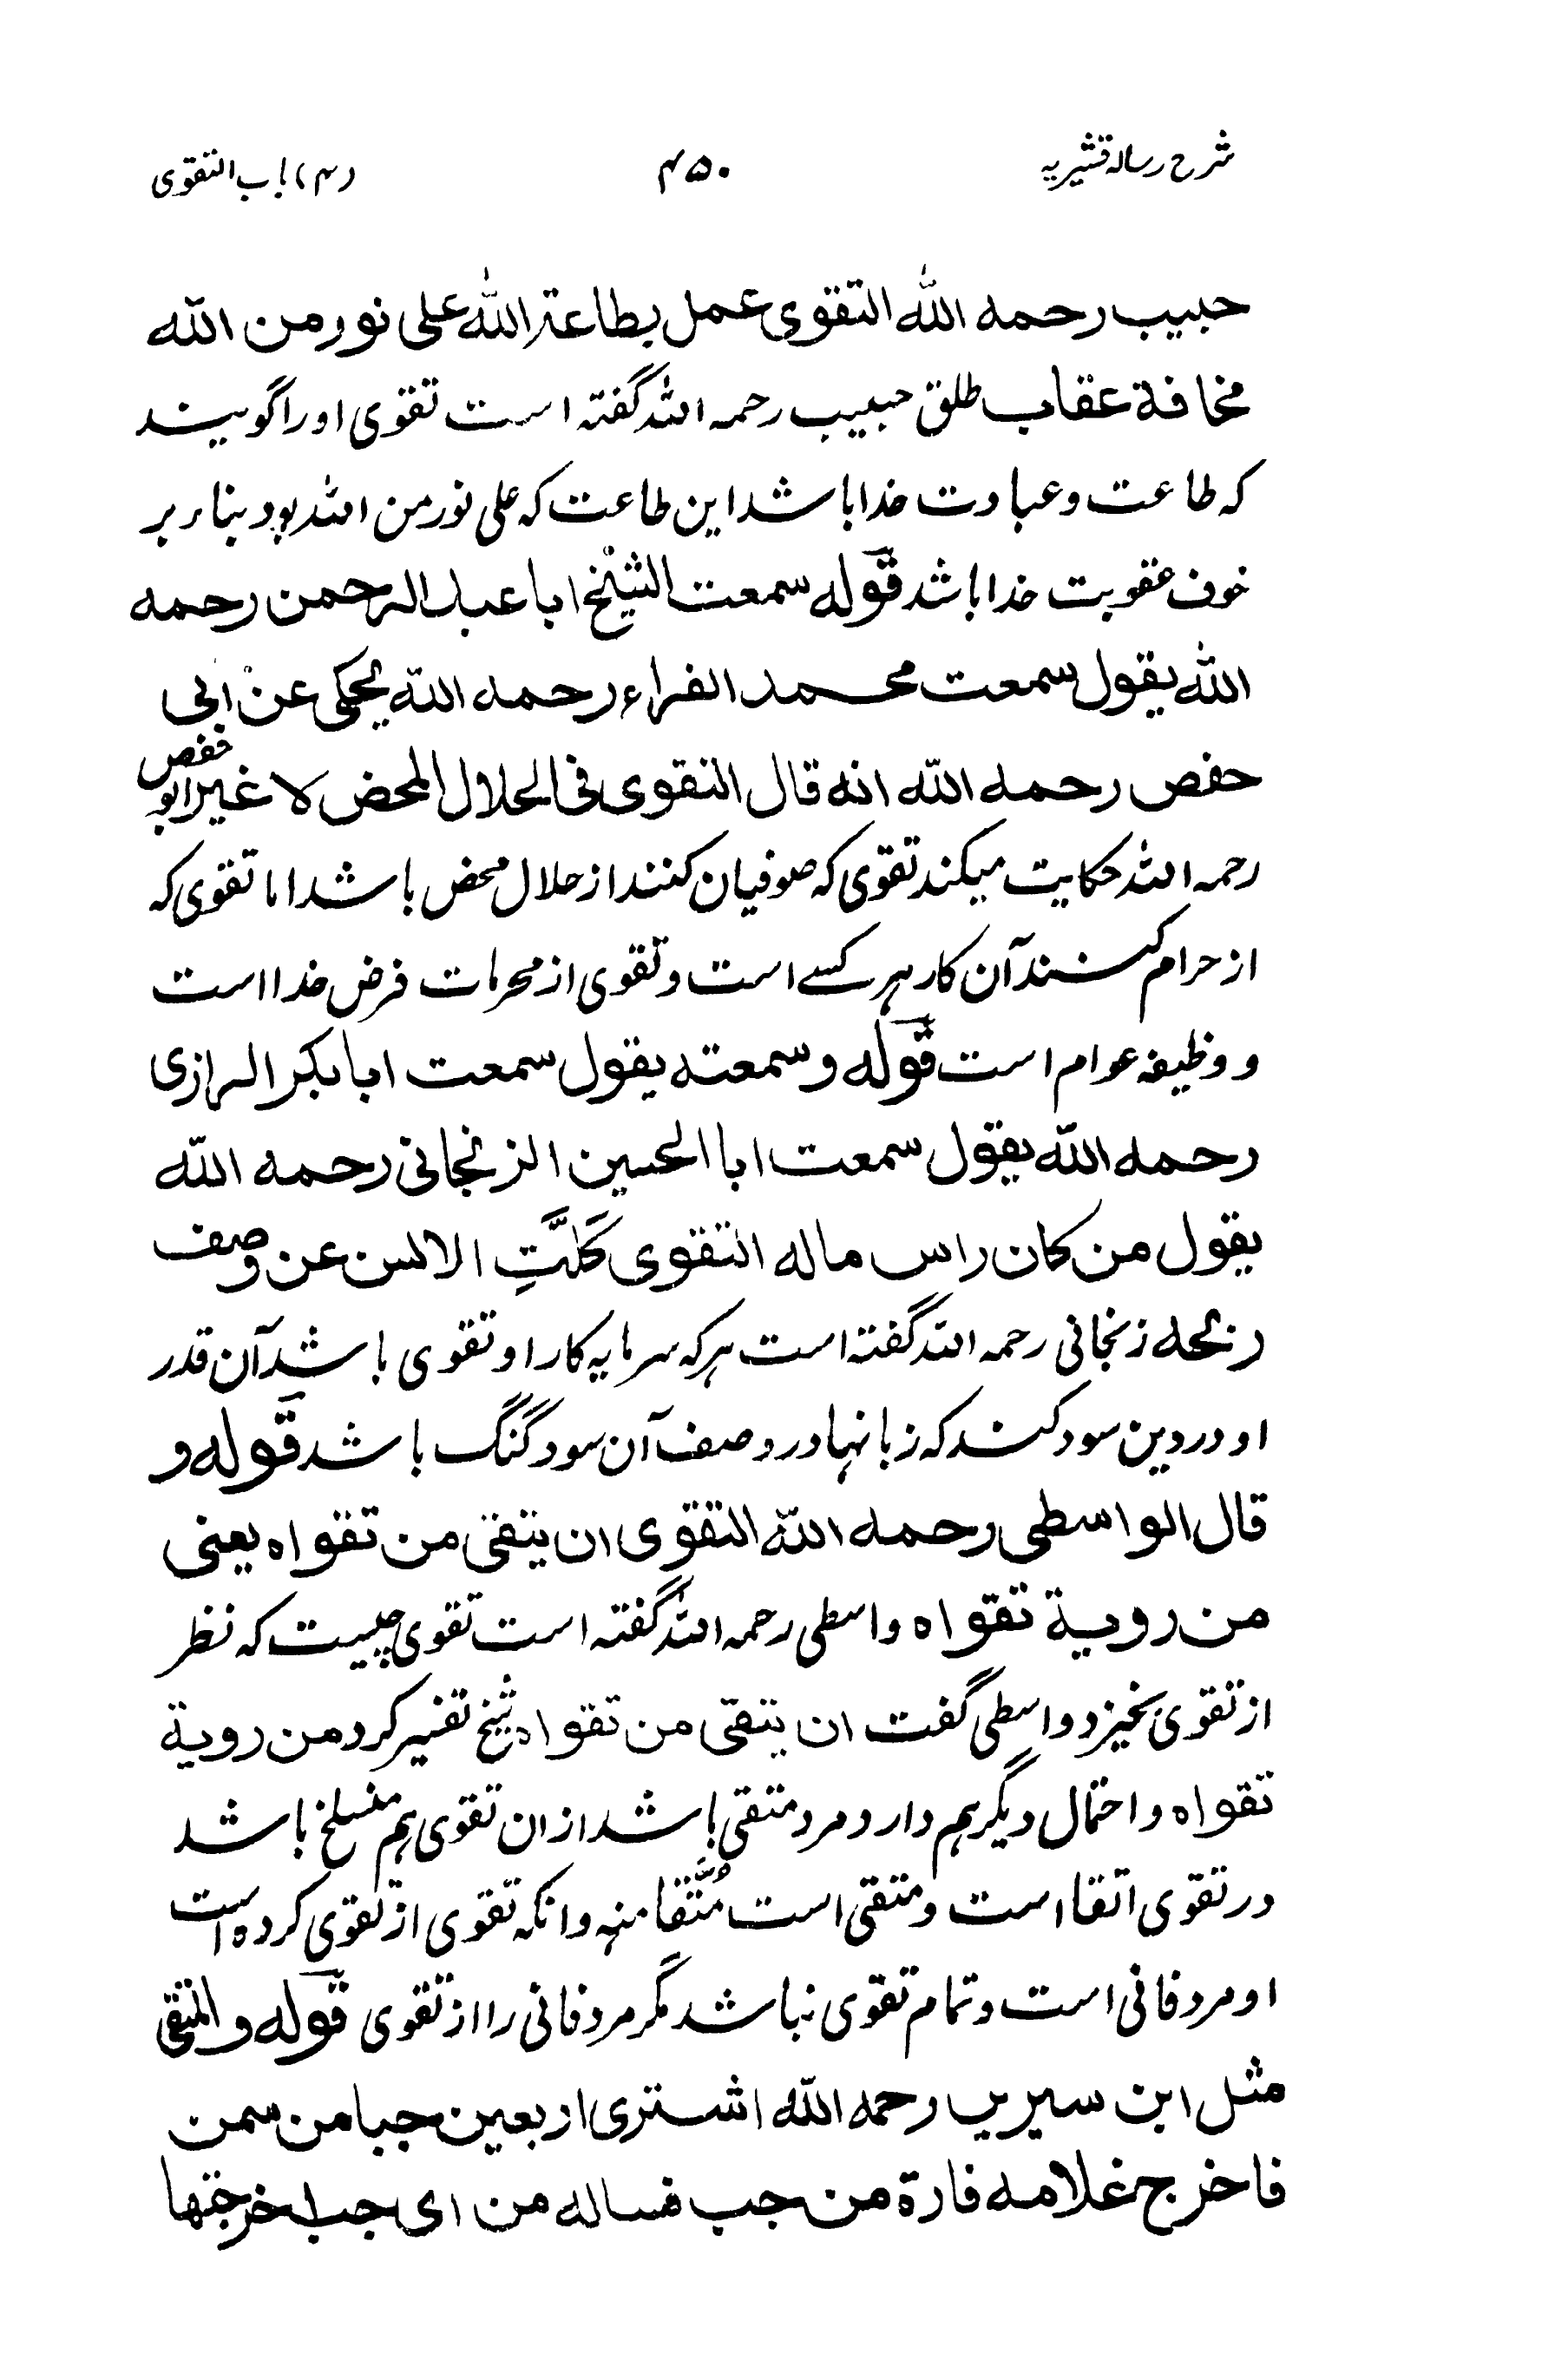 شرح رساله قشیریه
۴۵۰
(۴) باب التقوی
حبیب رحمه الله التقوی عمل بطاعة الله علی نور من الله
مخافة عقاب طلق حبیب رحمه الله گفته است تقوی او را گویند
که طاعت و عبادت خدا باشد این طاعت که علی نور من الله بود بناء بر
خوف عقوبت خدا باشد قوله سمعت الشیخ ابا عبد الرحمن رحمه
الله یقول سمعت محمد الفراء رحمه الله یحکی عن ابی
حفص رحمه الله انه قال التقوی فی الحلال المحض لا غیر ابو حفص
رحمه الله حکایت میکند تقوی که صوفیان کنند از حلال محض باشد اما تقوی که
از حرام کنند آن کار هر کسے است و تقوی از محرمات فرض خدا است
و وظیفه عوام است قوله و سمعته یقول سمعت ابا بکر الرازی
رحمه الله یقول سمعت ابا الحسین الزنجانی رحمه الله
یقول من کان راس ماله التقوی کَلَّتِ الالسن عن وصف
ربحه زنجانی رحمه الله گفته است هر که سرمایه کار او تقوی باشد آن قدر
او در دین سود کند که زبانها در وصف آن سود گنگ باشد قوله و
قال الواسطی رحمه الله التقوی ان یتقی من تقواه یعنی
من رویة تقواه واسطی رحمه الله گفته است تقوی چیست که نظر
از تقوی بخیزد واسطی گفت ان یتقی من تقواه شیخ تفسیر کرد من رویة
تقواه و احتمال دیگر هم دارد مرد متقی باشد ازان تقوی هم منسلخ باشد
در تقوی اتقا است و متقی است مُتَّقا منه وانکه تقوی از تقوی کرده است
او مرد فانی است و تمام تقوی نباشد مگر مرد فانی را از تقوی قوله و المتقی
مثل ابن سیرین رحمه الله اشتری اربعین حبا من سمن
فاخرج غلامه فارة من حب فساله من ای حب اخرجتها